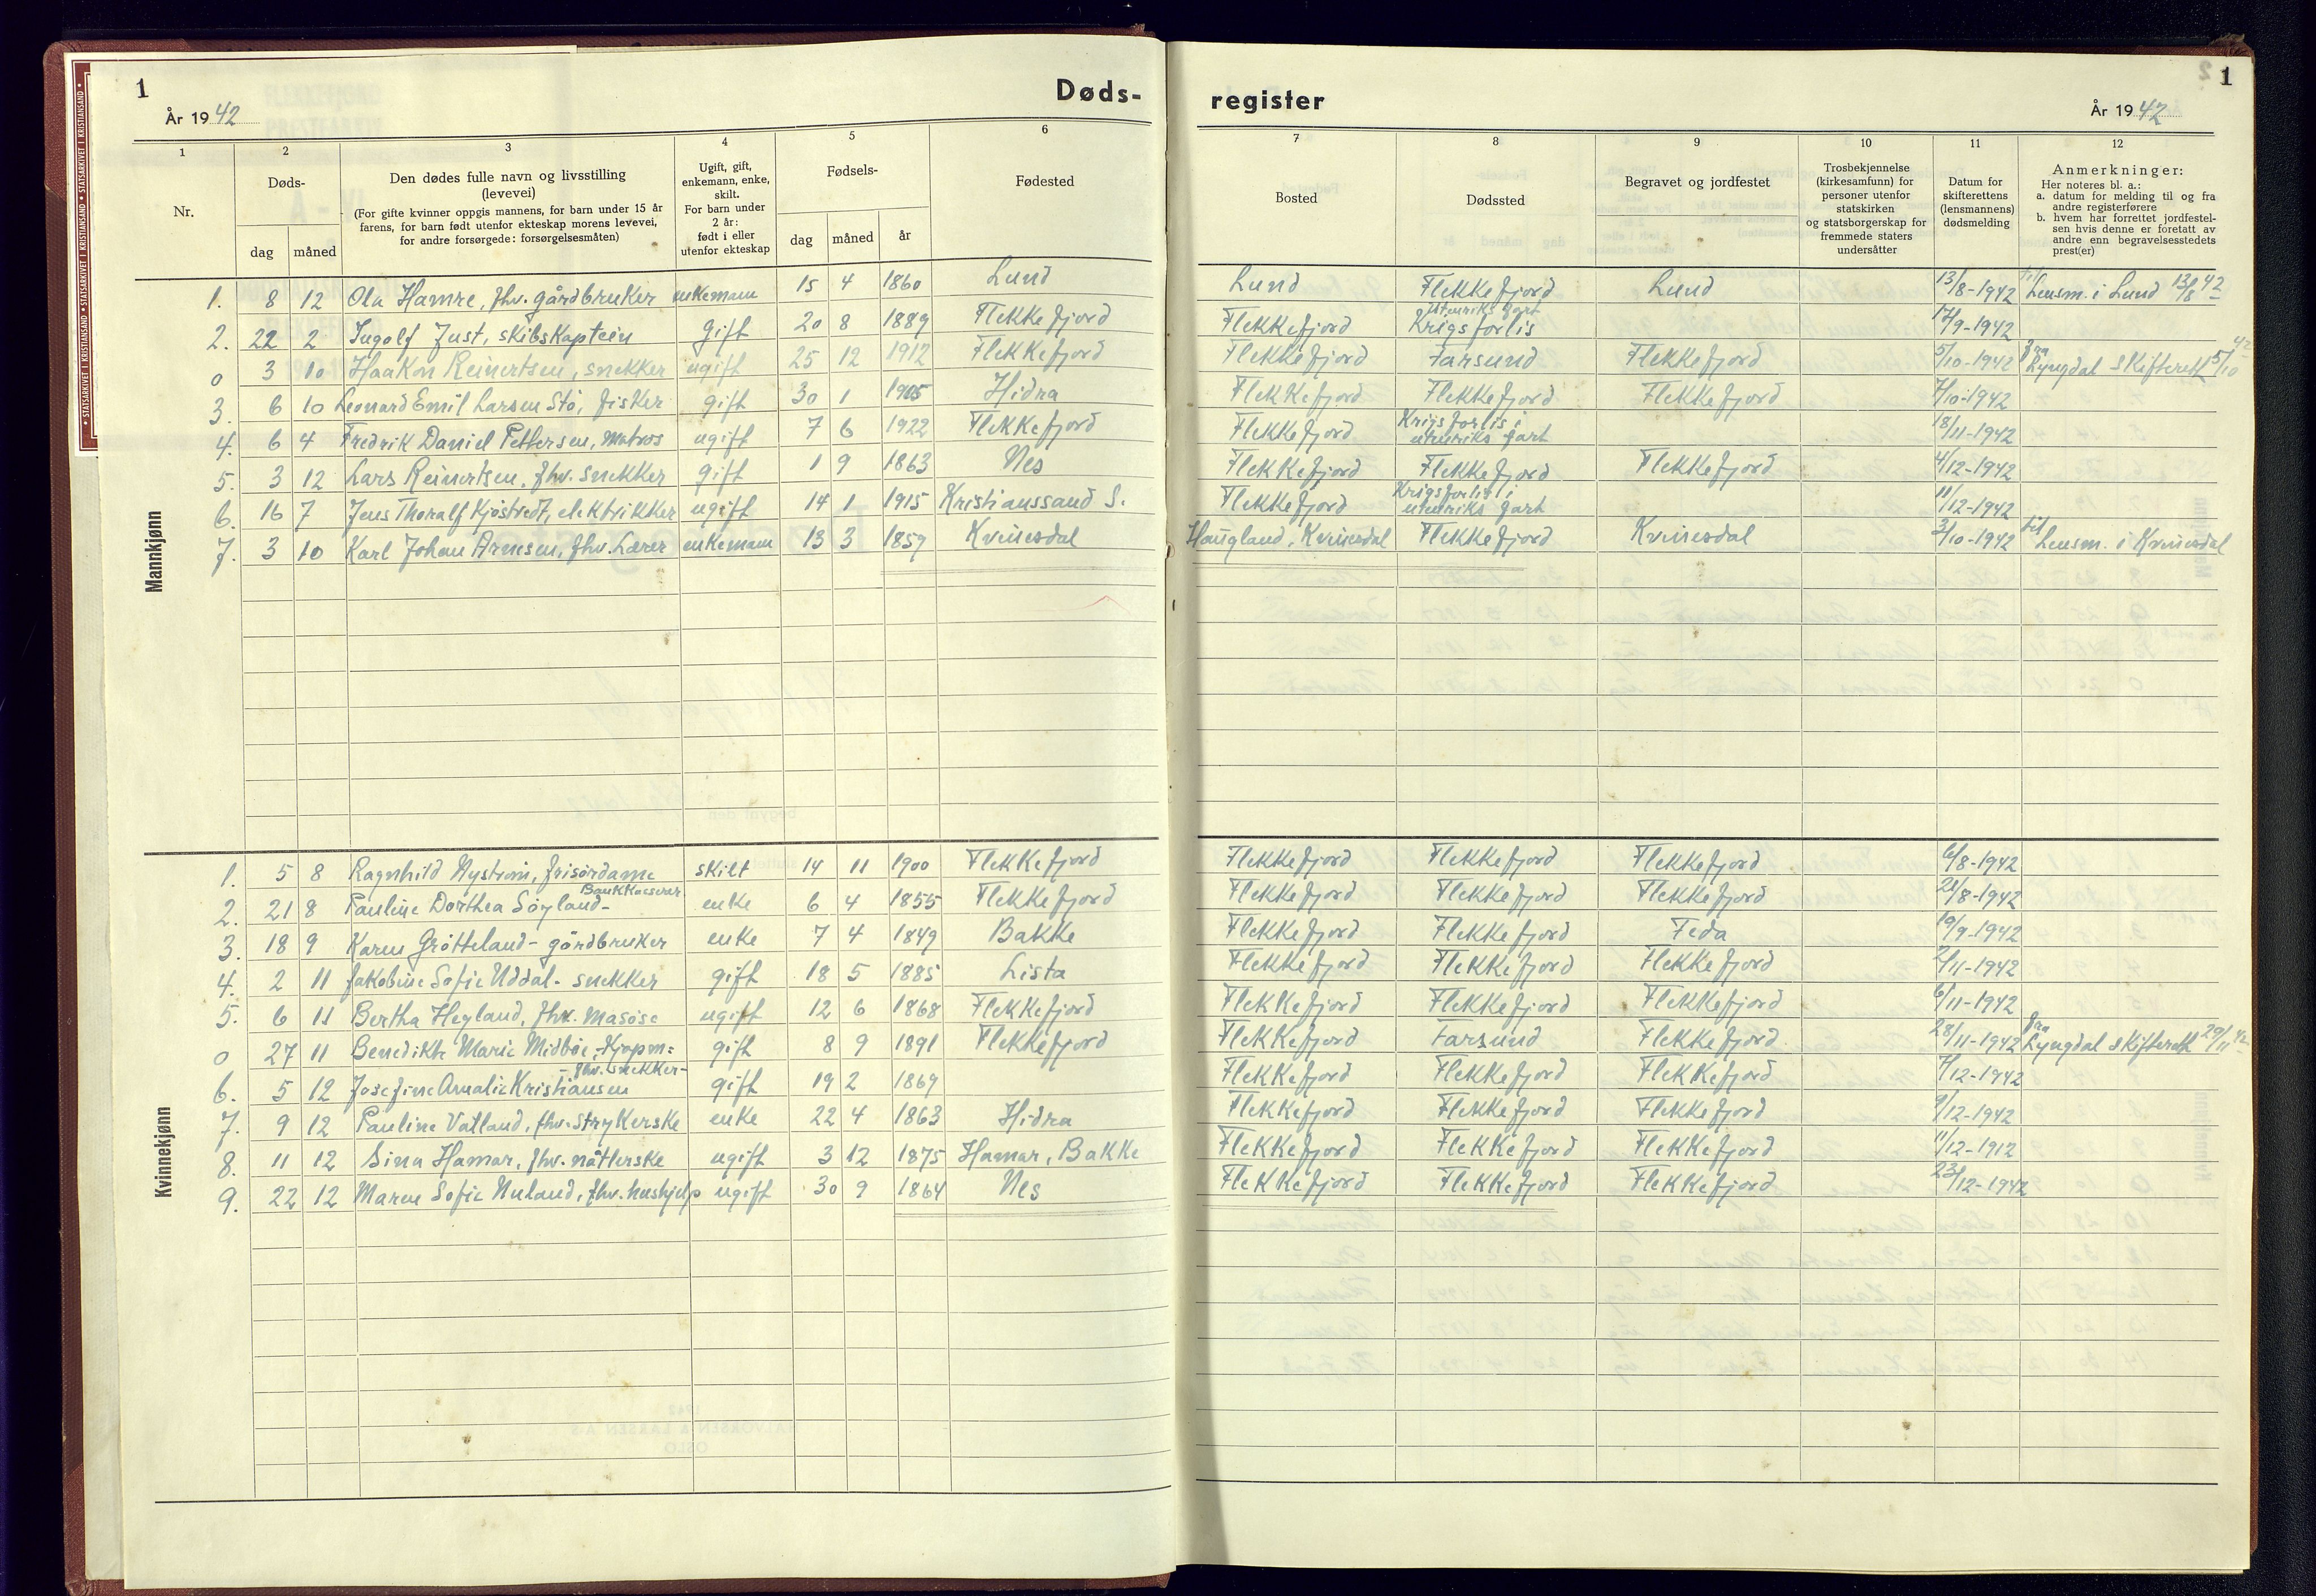 • STATSARKIVET I KRISTIANSAND • STATSARKIVET I KRISTIANSAND • STATSARKIVET I KRISTIANSAND •
1
Døds-
register
1
År 1942
År 1942
1 2 3 4 5 6 7 8 9 10 11 12
Nr.
Døds-
dag måned
Den dødes fulle navn og livsstilling
(levevei)
(For gifte kvinner oppgis mannens, for barn under 15 år
farens, for barn født utenfor ekteskap morens levevei,
for andre forsørgede: forsørgelsesmåten)
Ugift, gift,
enkemann, enke,
skilt.
For barn under
2 år:
født i eller
utenfor ekteskap
Fødsels-
dag måned år
Fødested
Bosted
Dødssted
Begravet og jordfestet
Trosbekjennelse
(kirkesamfunn) for
personer utenfor
statskirken
og statsborgerskap for
fremmede staters
undersåtter
Datum for
skifterettens
(lensmannens)
dødsmelding
Anmerkninger:
Her noteres bl. a.:
a. datum for melding til og fra
andre registerførere
b. hvem har forrettet jordfestel-
sen hvis denne er foretatt av
andre enn begravelsesstedets
prest(er)
Mannkjønn
1. 8 12 Ola Hamre, fhv. gårdbruker enkemann 15 4 1860 Lund Lund Flekkefjord Lund 13/8-1942 til Lensm. i Lund 13/8 42
2. 22 2 Ingolf Just, skibskaptein gift 20 8 1889 Flekkefjord Flekkefjord Krigsforlis utenriks fart 17/9-1942
0 3 10 Haakon Reinertsen, snekker ugift 25 12 1912 Flekkefjord Flekkefjord Farsund Flekkefjord 5/10-1942 fra Lyngdal skifterett 5/10 42
3. 6 10 Leonard Emil Larsen Stø, fisker gift 30 1 1905 Hidra Flekkefjord Flekkefjord Flekkefjord 7/10-1942
4. 6 4 Fredrik Daniel Pettersen, matros ugift 7 6 1922 Flekkefjord Flekkefjord Krigsforlis i utenriks fart 18/11-1942
5. 3 12 Lars Reinertsen, fhv. snekker gift 1 9 1863 Nes Flekkefjord Flekkefjord Flekkefjord 4/12-1942
6. 16 7 Jens Thoralf Kjøstvedt, elektrikker ugift 14 1 1915 Kristianssand S. Flekkefjord Krigsforlis i utenriks fart 11/12-1942
7. 3 10 Karl Johan Arnesen, fhv. Lærer enkemann 13 3 1859 Kvinesdal Haugland, Kvinesdal Flekkefjord Kvinesdal 3/10-1942 til Lensm. i Kvinesdal
Kvinnekjønn
1. 5 8 Ragnhild Nystrøm, frisørdame skilt 14 11 1900 Flekkefjord Flekkefjord Flekkefjord Flekkefjord 6/8-1942
2. 21 8 Pauline Dorthea Søyland - Bankkasserer enke 6 4 1855 Flekkefjord Flekkefjord Flekkefjord Flekkefjord 21/8-1942
3. 18 9 Karen Grøtteland - gårdbruker enke 7 4 1849 Bakke Flekkefjord Flekkefjord Feda 19/9-1942
4. 2 11 Jakobine Sofie Uddal - snekker gift 18 5 1885 Lista Flekkefjord Flekkefjord Flekkefjord 2/11-1942
5. 6 11 Bertha Heyland, fhv. Masøse ugift 12 6 1868 Flekkefjord Flekkefjord Flekkefjord Flekkefjord 6/11-1942
0 27 11 Benedikte Marie Midbøe, Kjøpm: gift 8 9 1891 Flekkefjord Flekkefjord Farsund Flekkefjord 28/11-1942 fra Lyngdal skifterett 29/11 42
6. 5 12 Josefine Amalie Kristiansen - fhv. snekker - gift 19 2 1869 Flekkefjord Flekkefjord Flekkefjord 7/12-1942
7. 9 12 Pauline Vatland, fhv. strykerske enke 22 4 1863 Hidra Flekkefjord Flekkefjord Flekkefjord 9/12-1942
8. 11 12 Sina Hamar, fhv. nåtlerske ugift 3 12 1875 Hamar, Bakke Flekkefjord Flekkefjord Flekkefjord 11/12-1912
9. 22 12 Maren Sofie Nuland, fhv. hushjelp ugift 30 9 1864 Nes Flekkefjord Flekkefjord Flekkefjord 23/12-1942